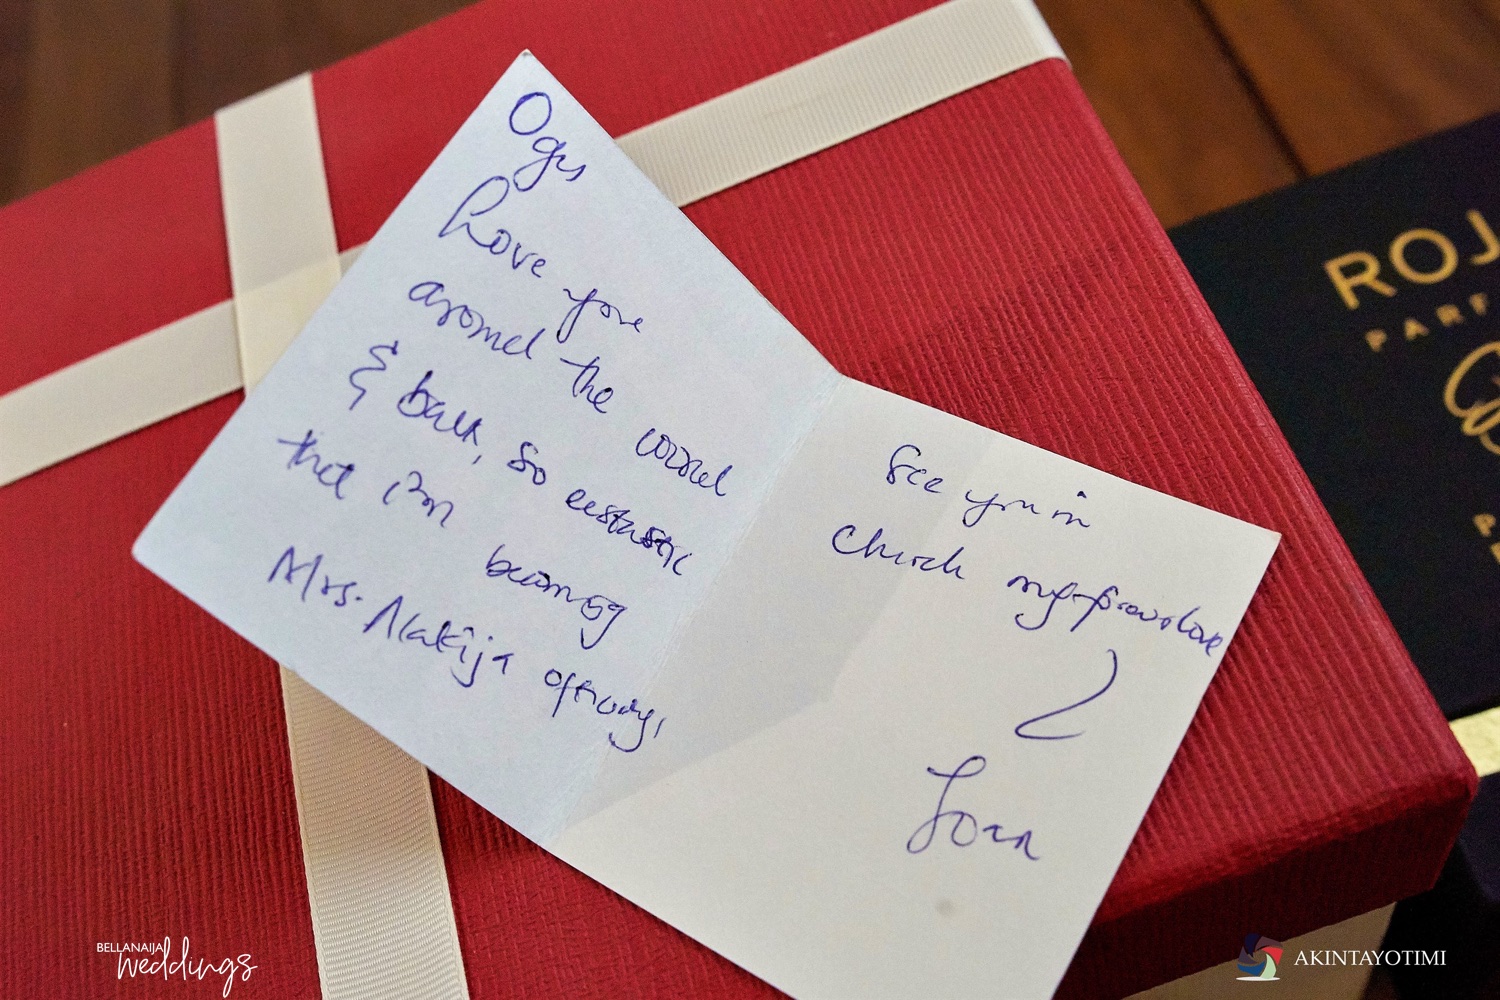 Ogs
Love you
around the world
& back, so ecstatic
that i'm becoming
Mrs. Alakija
See you in
Church my
Joan
ROJ
PARF
BELLANAIJA
weddings
AKINTAYOTIMI